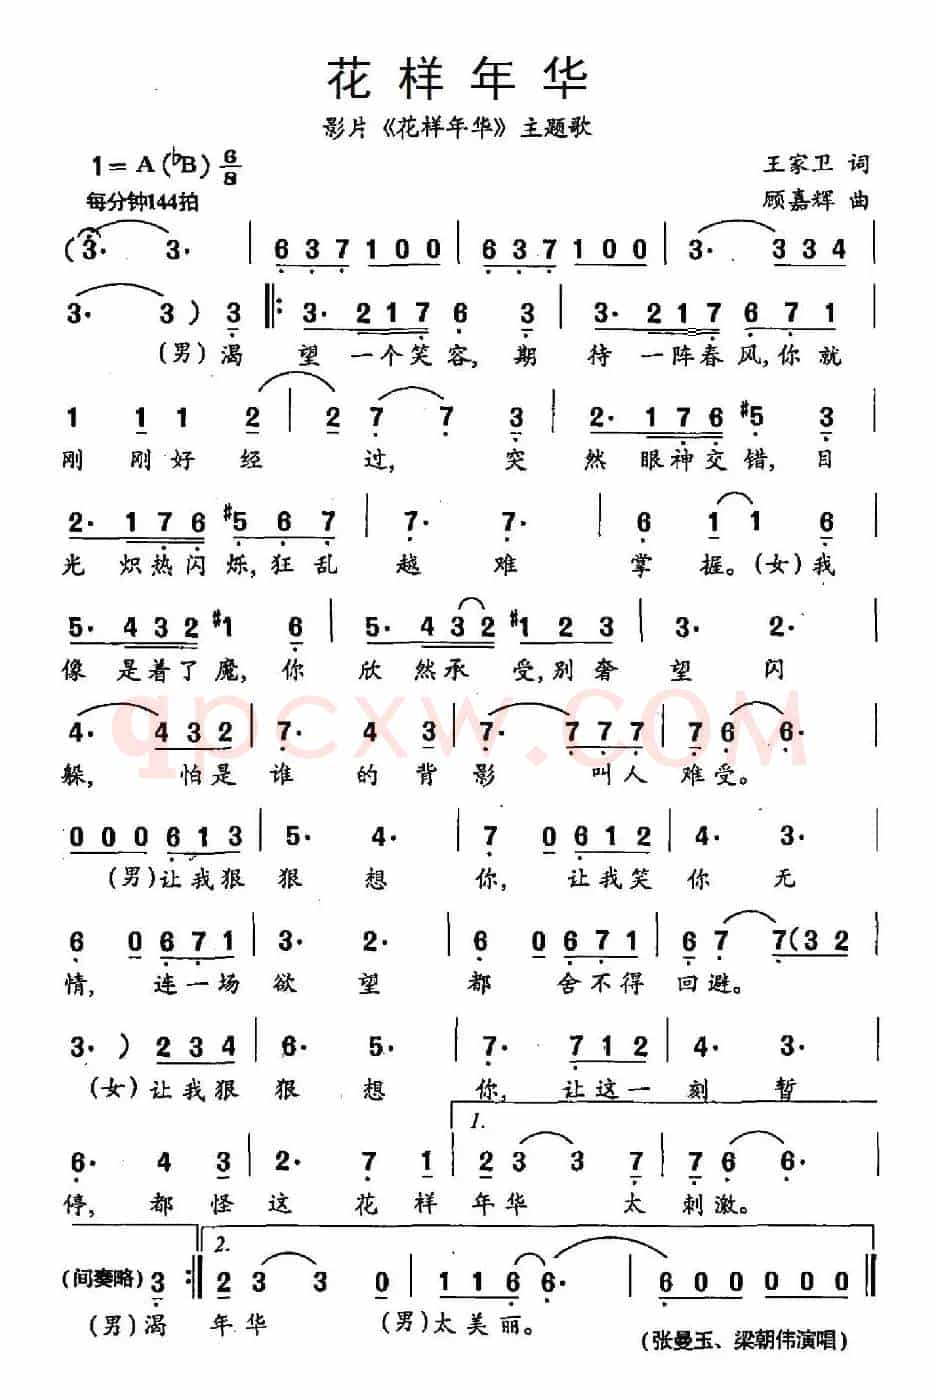 花样年华
影片《花样年华》主题歌
1=A(♭B) 6/8 王家卫 词
每分钟144拍 顾嘉辉 曲
(3· 3· | 6 3 7 1 0 0 | 6 3 7 1 0 0 | 3· 3 3 4 |
3· 3 ) 3 ‖: 3· 2 1 7 6 3 | 3· 2 1 7 6 7 1 |
(男)渴 望 一个笑容,期 待 一阵春风,你就
1 1 1 2 | 2 7 7 3 | 2· 1 7 6 #5 3 |
刚 刚好 经 过, 突 然 眼神交错,目
2· 1 7 6 #5 6 7 | 7· 7· | 6 1 1 6 |
光 炽热闪烁,狂乱 越 难 掌 握。(女)我
5· 4 3 2 #1 6 | 5· 4 3 2 #1 2 3 | 3· 2· |
像 是着了魔,你 欣 然承 受,别奢 望 闪
4· 4 3 2 | 7· 4 3 | 7· 7 7 7 | 7 6 6· |
躲, 怕是 谁 的 背 影 叫人 难受。
qpcxw.com
0 0 0 6 1 3 | 5· 4· | 7 0 6 1 2 | 4· 3· |
(男)让我狠 狠 想 你, 让我笑 你 无
6 0 6 7 1 | 3· 2· | 6 0 6 7 1 | 6 7 7(3 2 |
情, 连一场 欲 望 都 舍不得 回避。
3· ) 2 3 4 | 6· 5· | 7· 7 1 2 | 4· 3· |
(女)让我狠 狠 想 你, 让这一 刻 暂
1.
6· 4 3 | 2· 7 1 | 2 3 3 7 | 7 6 6· |
停, 都 怪 这 花 样 年华 太 刺激。
2.
(间奏略) 3 :‖ 2 3 3 0 | 1 1 6 6· | 6 0 0 0 0 0 ‖
(男)渴 年华 (男)太美丽。
(张曼玉、梁朝伟演唱)